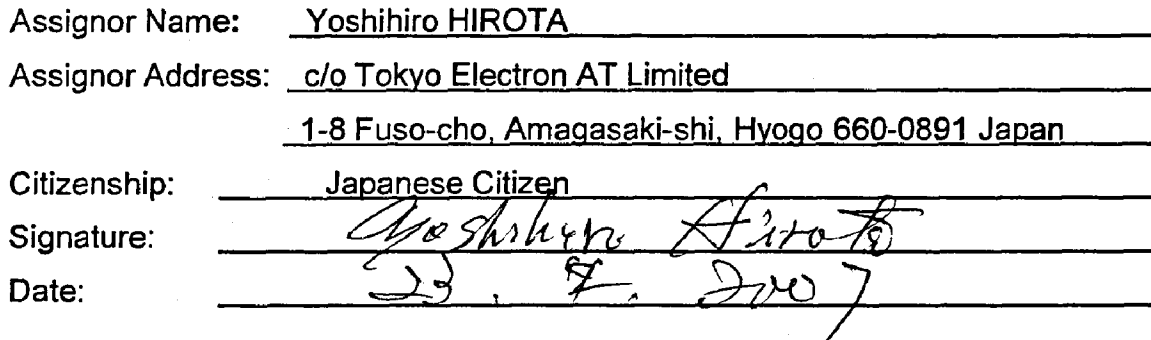 Assignor Name: Yoshihiro HIROTA
Assignor Address: c/o Tokyo Electron AT Limited
1-8 Fuso-cho, Amagasaki-shi, Hyogo 660-0891 Japan
Citizenship: Japanese Citizen
Signature: Yoshihiro Hirota
Date: 23. 2007